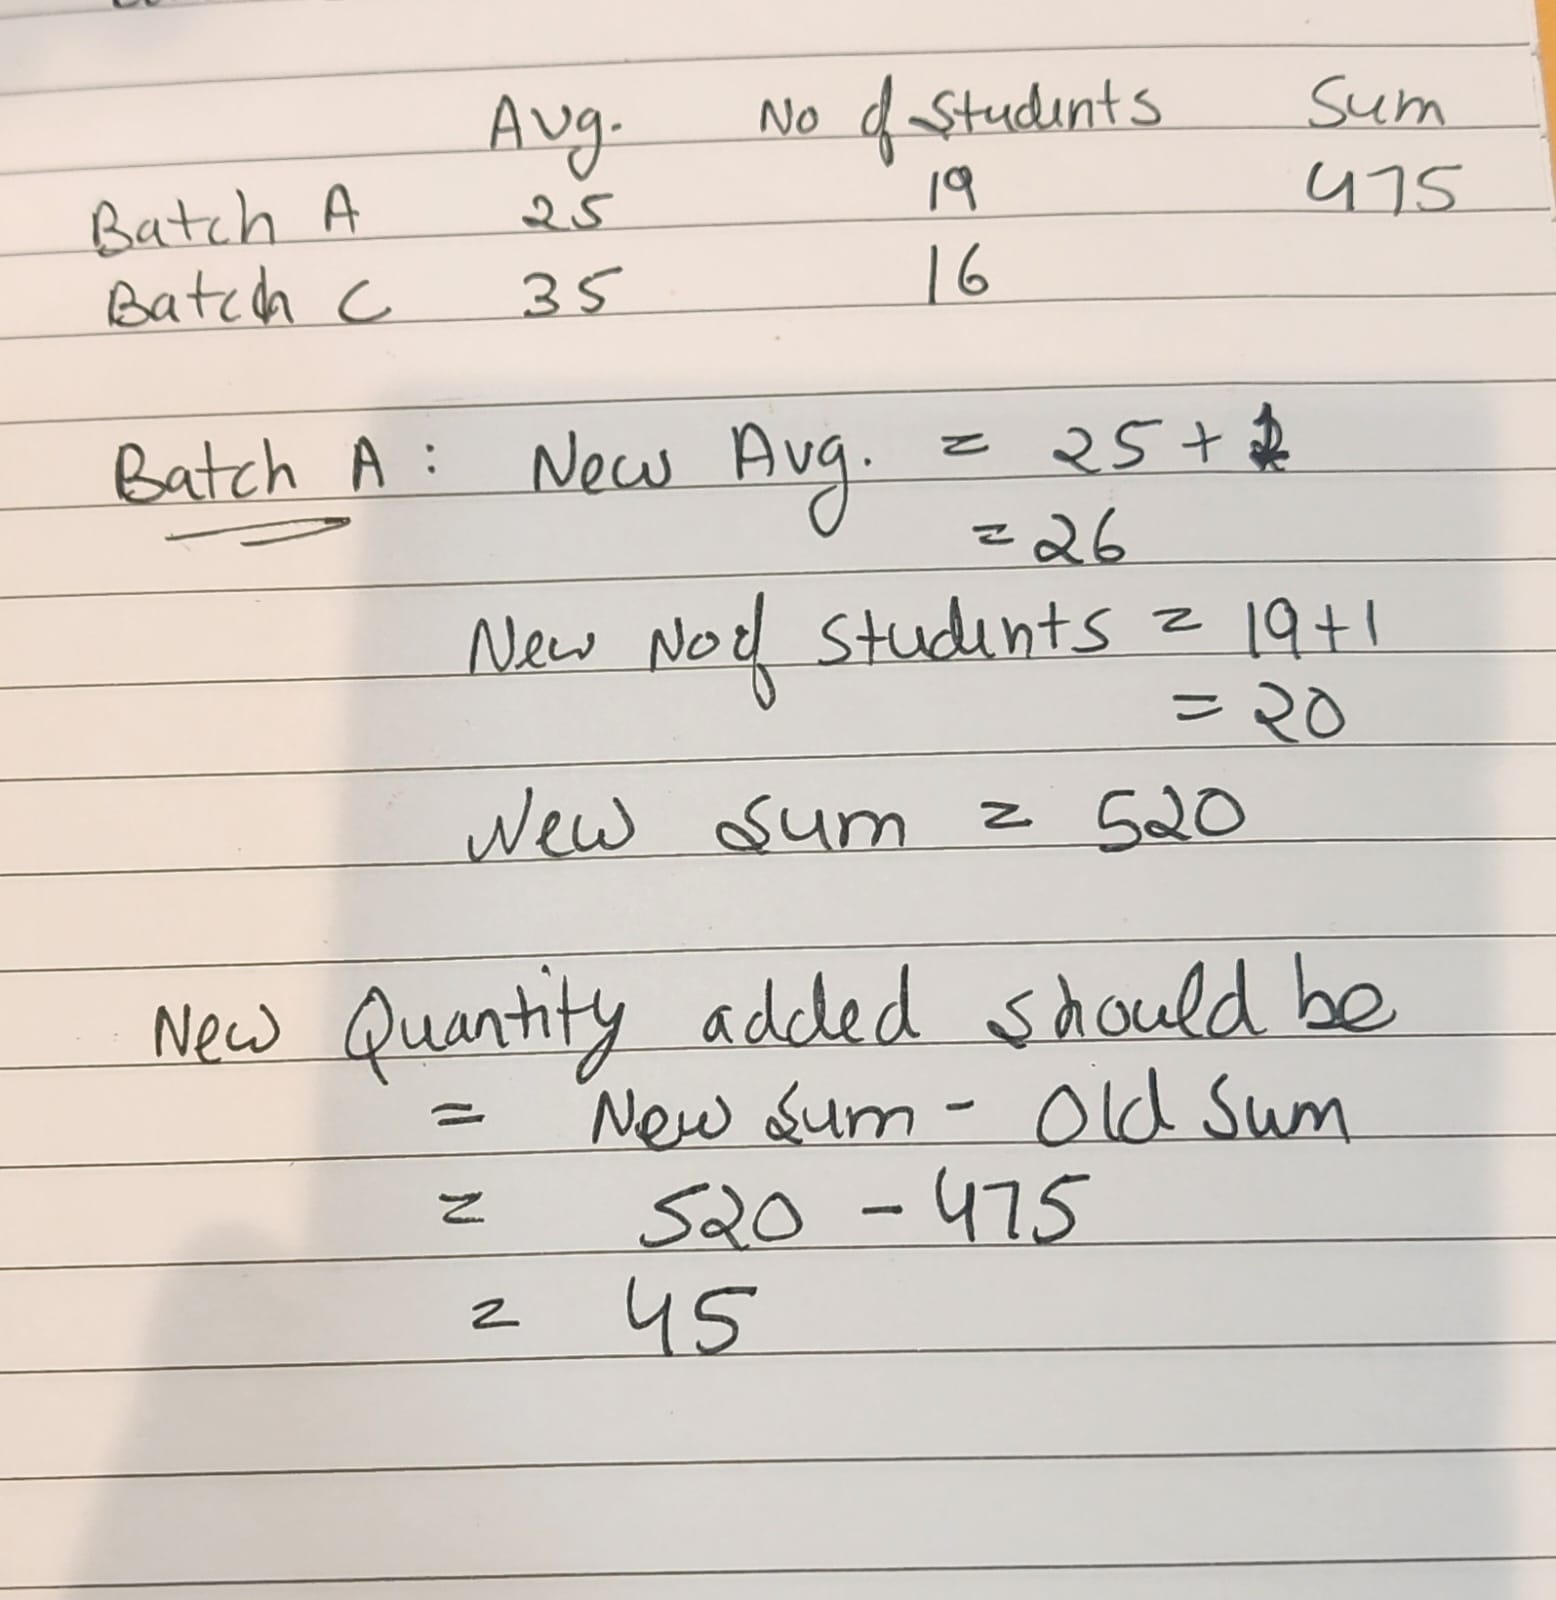 Avg. No of Students Sum
Batch A 25 19 475
Batch C 35 16
Batch A : New Avg. = 25 + 1
= 26
New No of Students = 19+1
= 20
New Sum = 520
New Quantity added should be
= New Sum - Old Sum
= 520 - 475
= 45